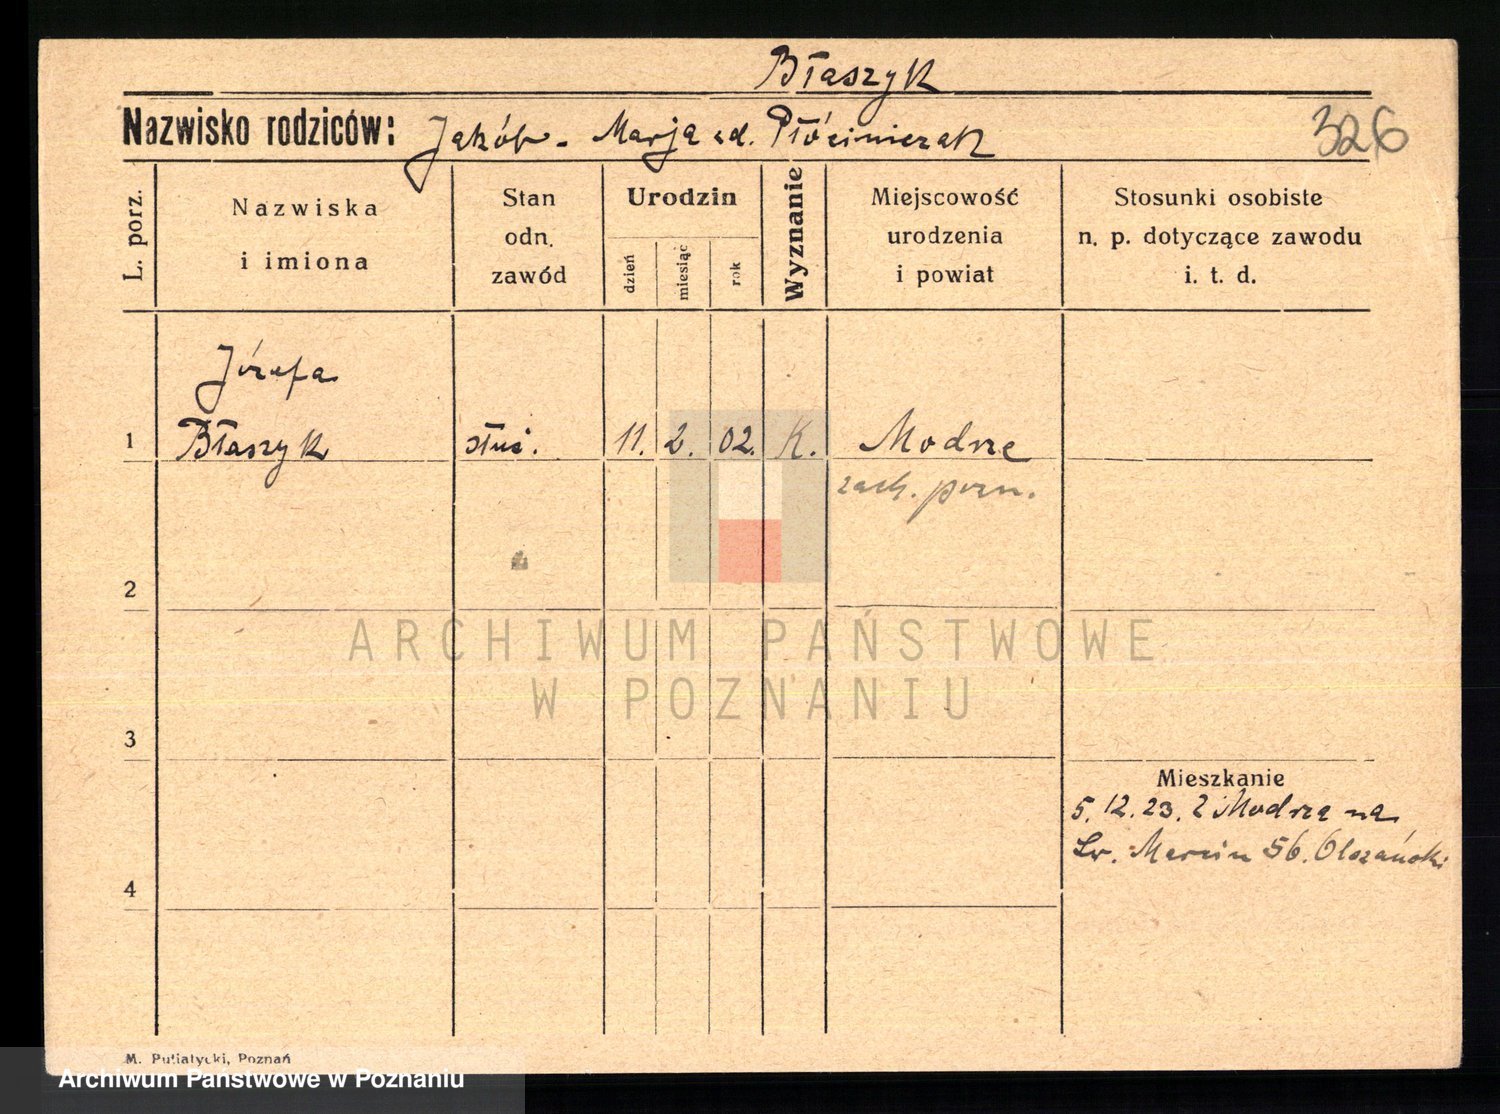 Błaszyk
Nazwisko rodziców: Jakób - Marja zd. Płóciniczak
326
L. porz.
Nazwiska
i imiona
Stan
odn.
zawód
Urodzin
dzień
miesiąc
rok
Wyznanie
Miejscowość
urodzenia
i powiat
Stosunki osobiste
n. p. dotyczące zawodu
i. t. d.
Józefa
1 Błaszyk służ. 11. 2. 02. K. Modrze
zach. pozn.
2
ARCHIWUM PAŃSTWOWE
W POZNANIU
3
Mieszkanie
5. 12. 23. z Modrza na
Św. Marcin 56. Olszański
4
M. Putiatycki, Poznań
Archiwum Państwowe w Poznaniu